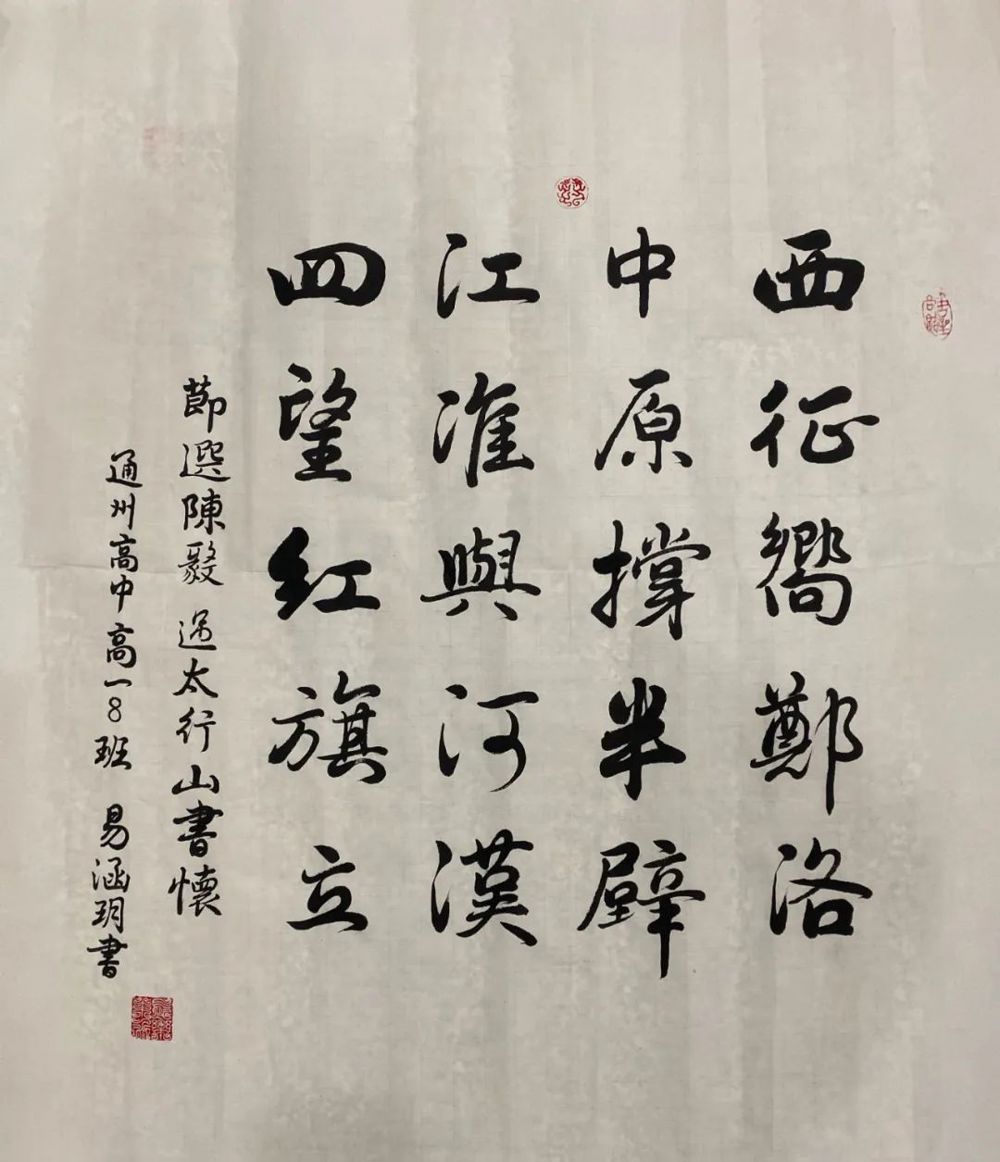 西征嚮鄭洛
中原撑半壁
江淮與河漢
四望红旗立
節選陳毅 過太行山書懷
通州高中高一8班 易涵玥書